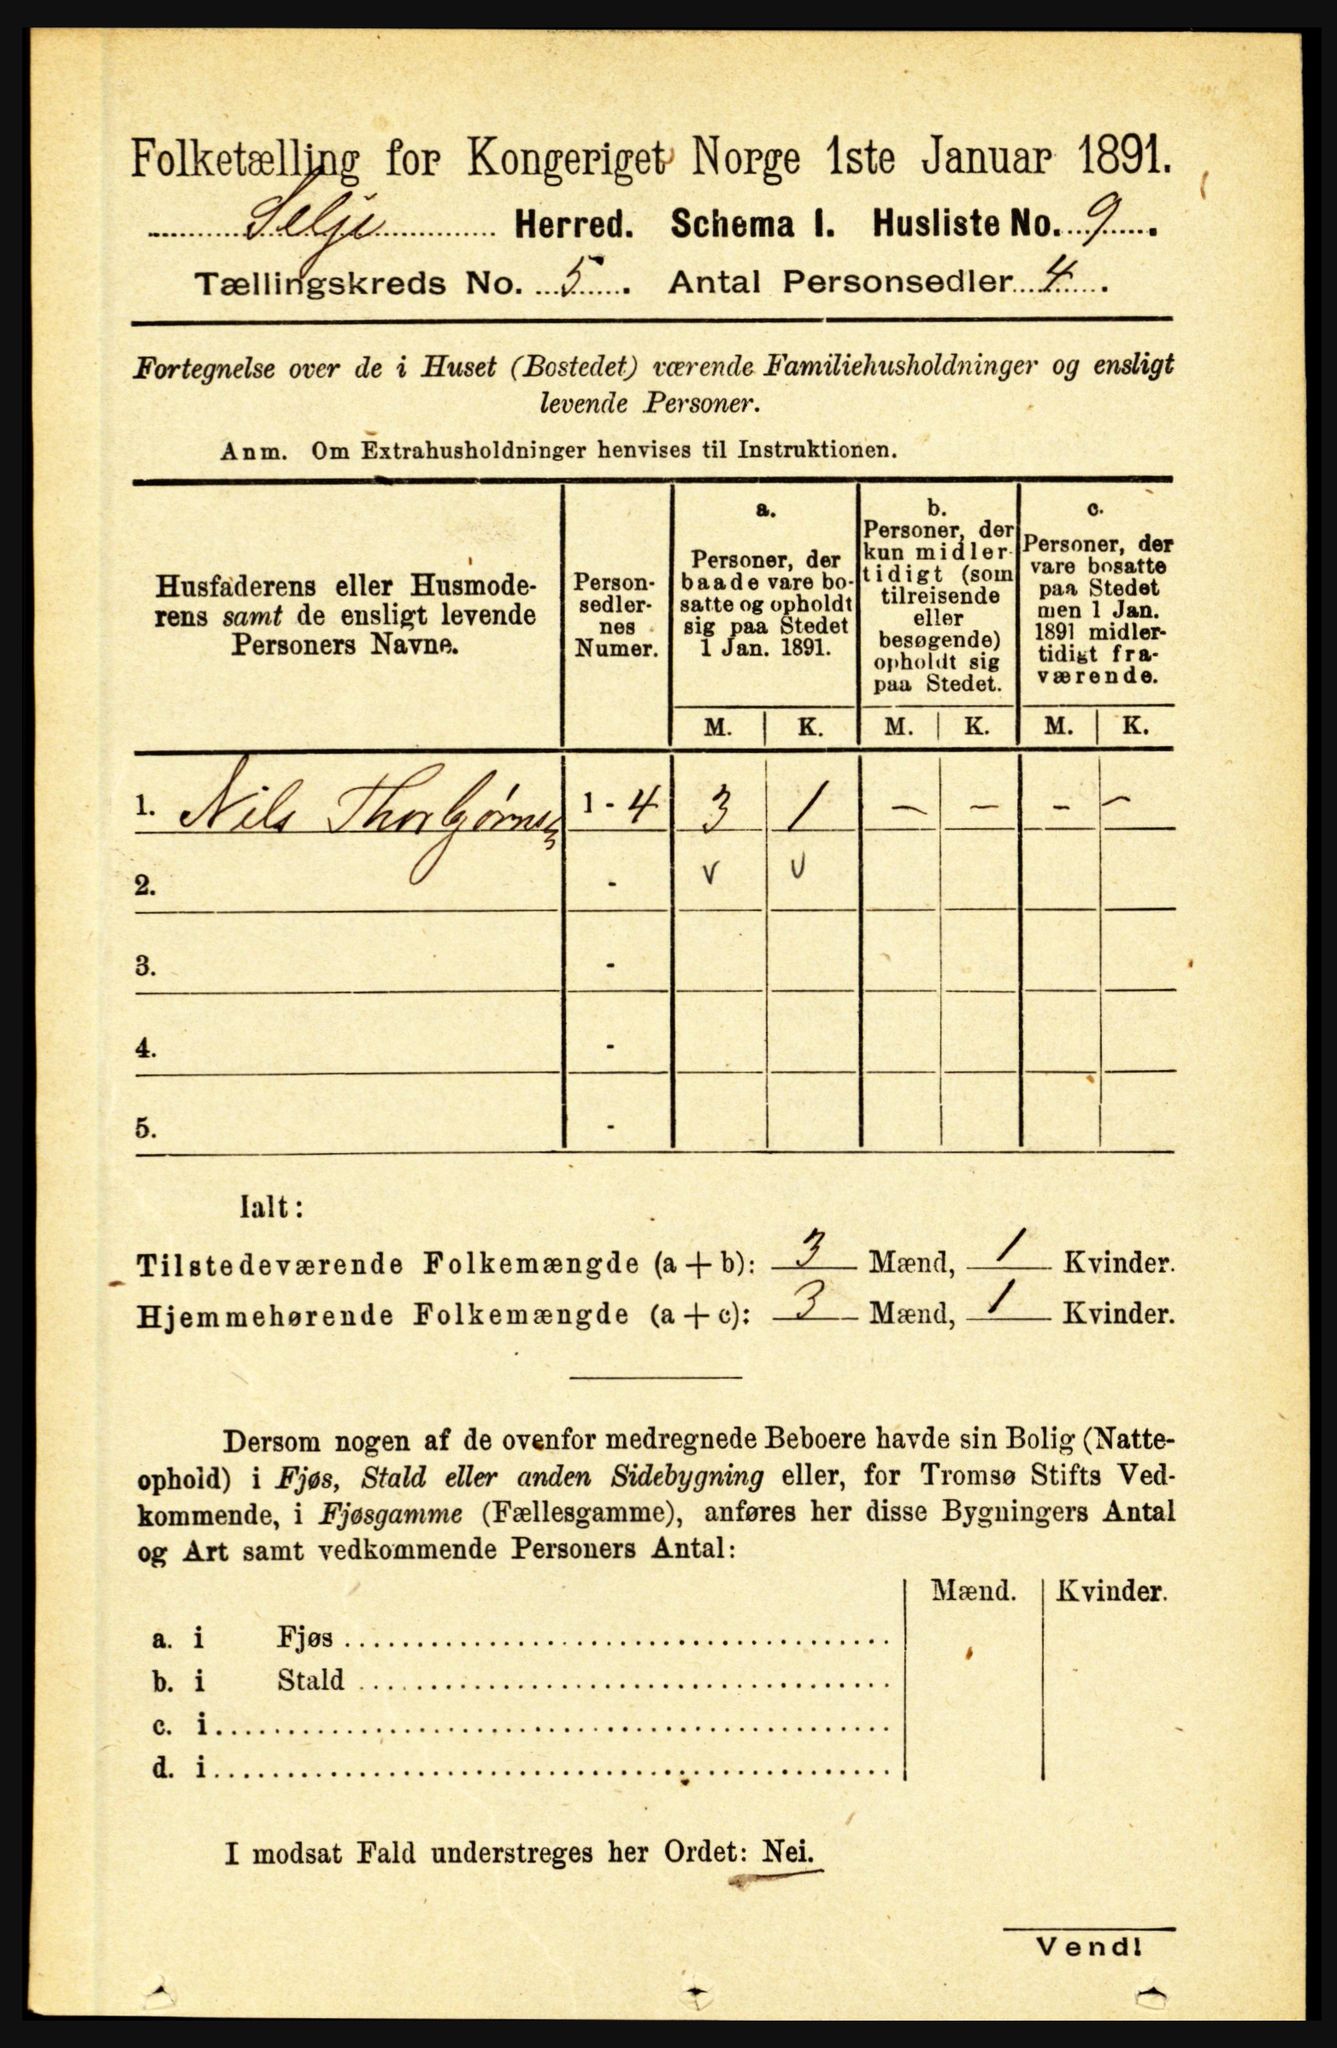 Folketælling for Kongeriget Norge 1ste Januar 1891.
Selje Herred. Schema I. Husliste No. 9.
Tællingskreds No. 5. Antal Personsedler 4.
Fortegnelse over de i Huset (Bostedet) værende Familiehusholdninger og ensligt
levende Personer.
Anm. Om Extrahusholdninger henvises til Instruktionen.
Husfaderens eller Husmode-
rens samt de ensligt levende
Personers Navne.
Person-
sedler-
nes
Numer.
a.
Personer, der
baade vare bo-
satte og opholdt
sig paa Stedet
1 Jan. 1891.
b.
Personer, der
kun midler-
tidigt (som
tilreisende
eller
besøgende)
opholdt sig
paa Stedet.
c.
Personer, der
vare bosatte
paa Stedet
men 1 Jan.
1891 midler-
tidigt fra-
værende.
M. K. M. K. M. K.
1. Nils Thorbjørnsen 1 - 4 3 1 — — — —
2. - v v
3. -
4. -
5. -
Ialt:
Tilstedeværende Folkemængde (a + b): 3 Mænd, 1 Kvinder.
Hjemmehørende Folkemængde (a + c): 3 Mænd, 1 Kvinder.
Dersom nogen af de ovenfor medregnede Beboere havde sin Bolig (Natte-
ophold) i Fjøs, Stald eller anden Sidebygning eller, for Tromsø Stifts Ved-
kommende, i Fjøsgamme (Fællesgamme), anføres her disse Bygningers Antal
og Art samt vedkommende Personers Antal:
Mænd. Kvinder.
a. i Fjøs
b. i Stald
c. i
d. i
I modsat Fald understreges her Ordet: Nei.
Vend!